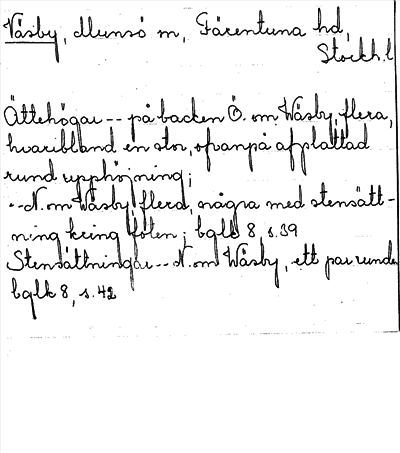 Väsby, Munsö sn, Färentuna hd,
Stockh. l
Ättehögar -- på backen Ö. om Wäsby, flera,
hvaribland en stor, ofvanpå afplattad
rund upphöjning;
-- N. om Wäsby flera, några med stensätt-
ning kring foten; bglk 8, s. 39
Stensättningar -- N. om Wäsby, ett par runda
bglk 8, s. 42